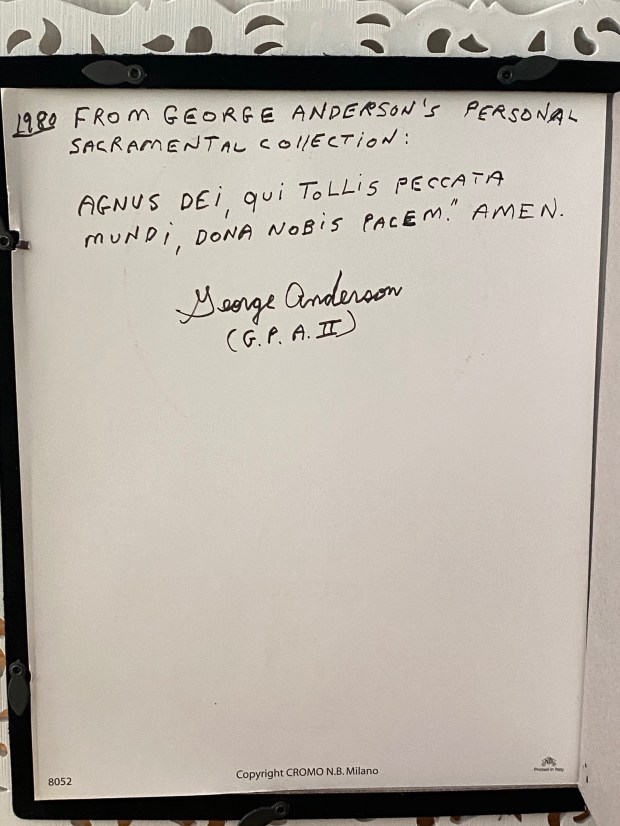 1980 FROM GEORGE ANDERSON'S PERSONAL
SACRAMENTAL COllECTiON:
AGNUS DEi, qui TOLLiS PECCATA
MUNDi, DONA NOBiS PACEM." AMEN.
George Anderson
(G. P. A. II)
8052
Copyright CROMO N.B. Milano
Printed in Italy